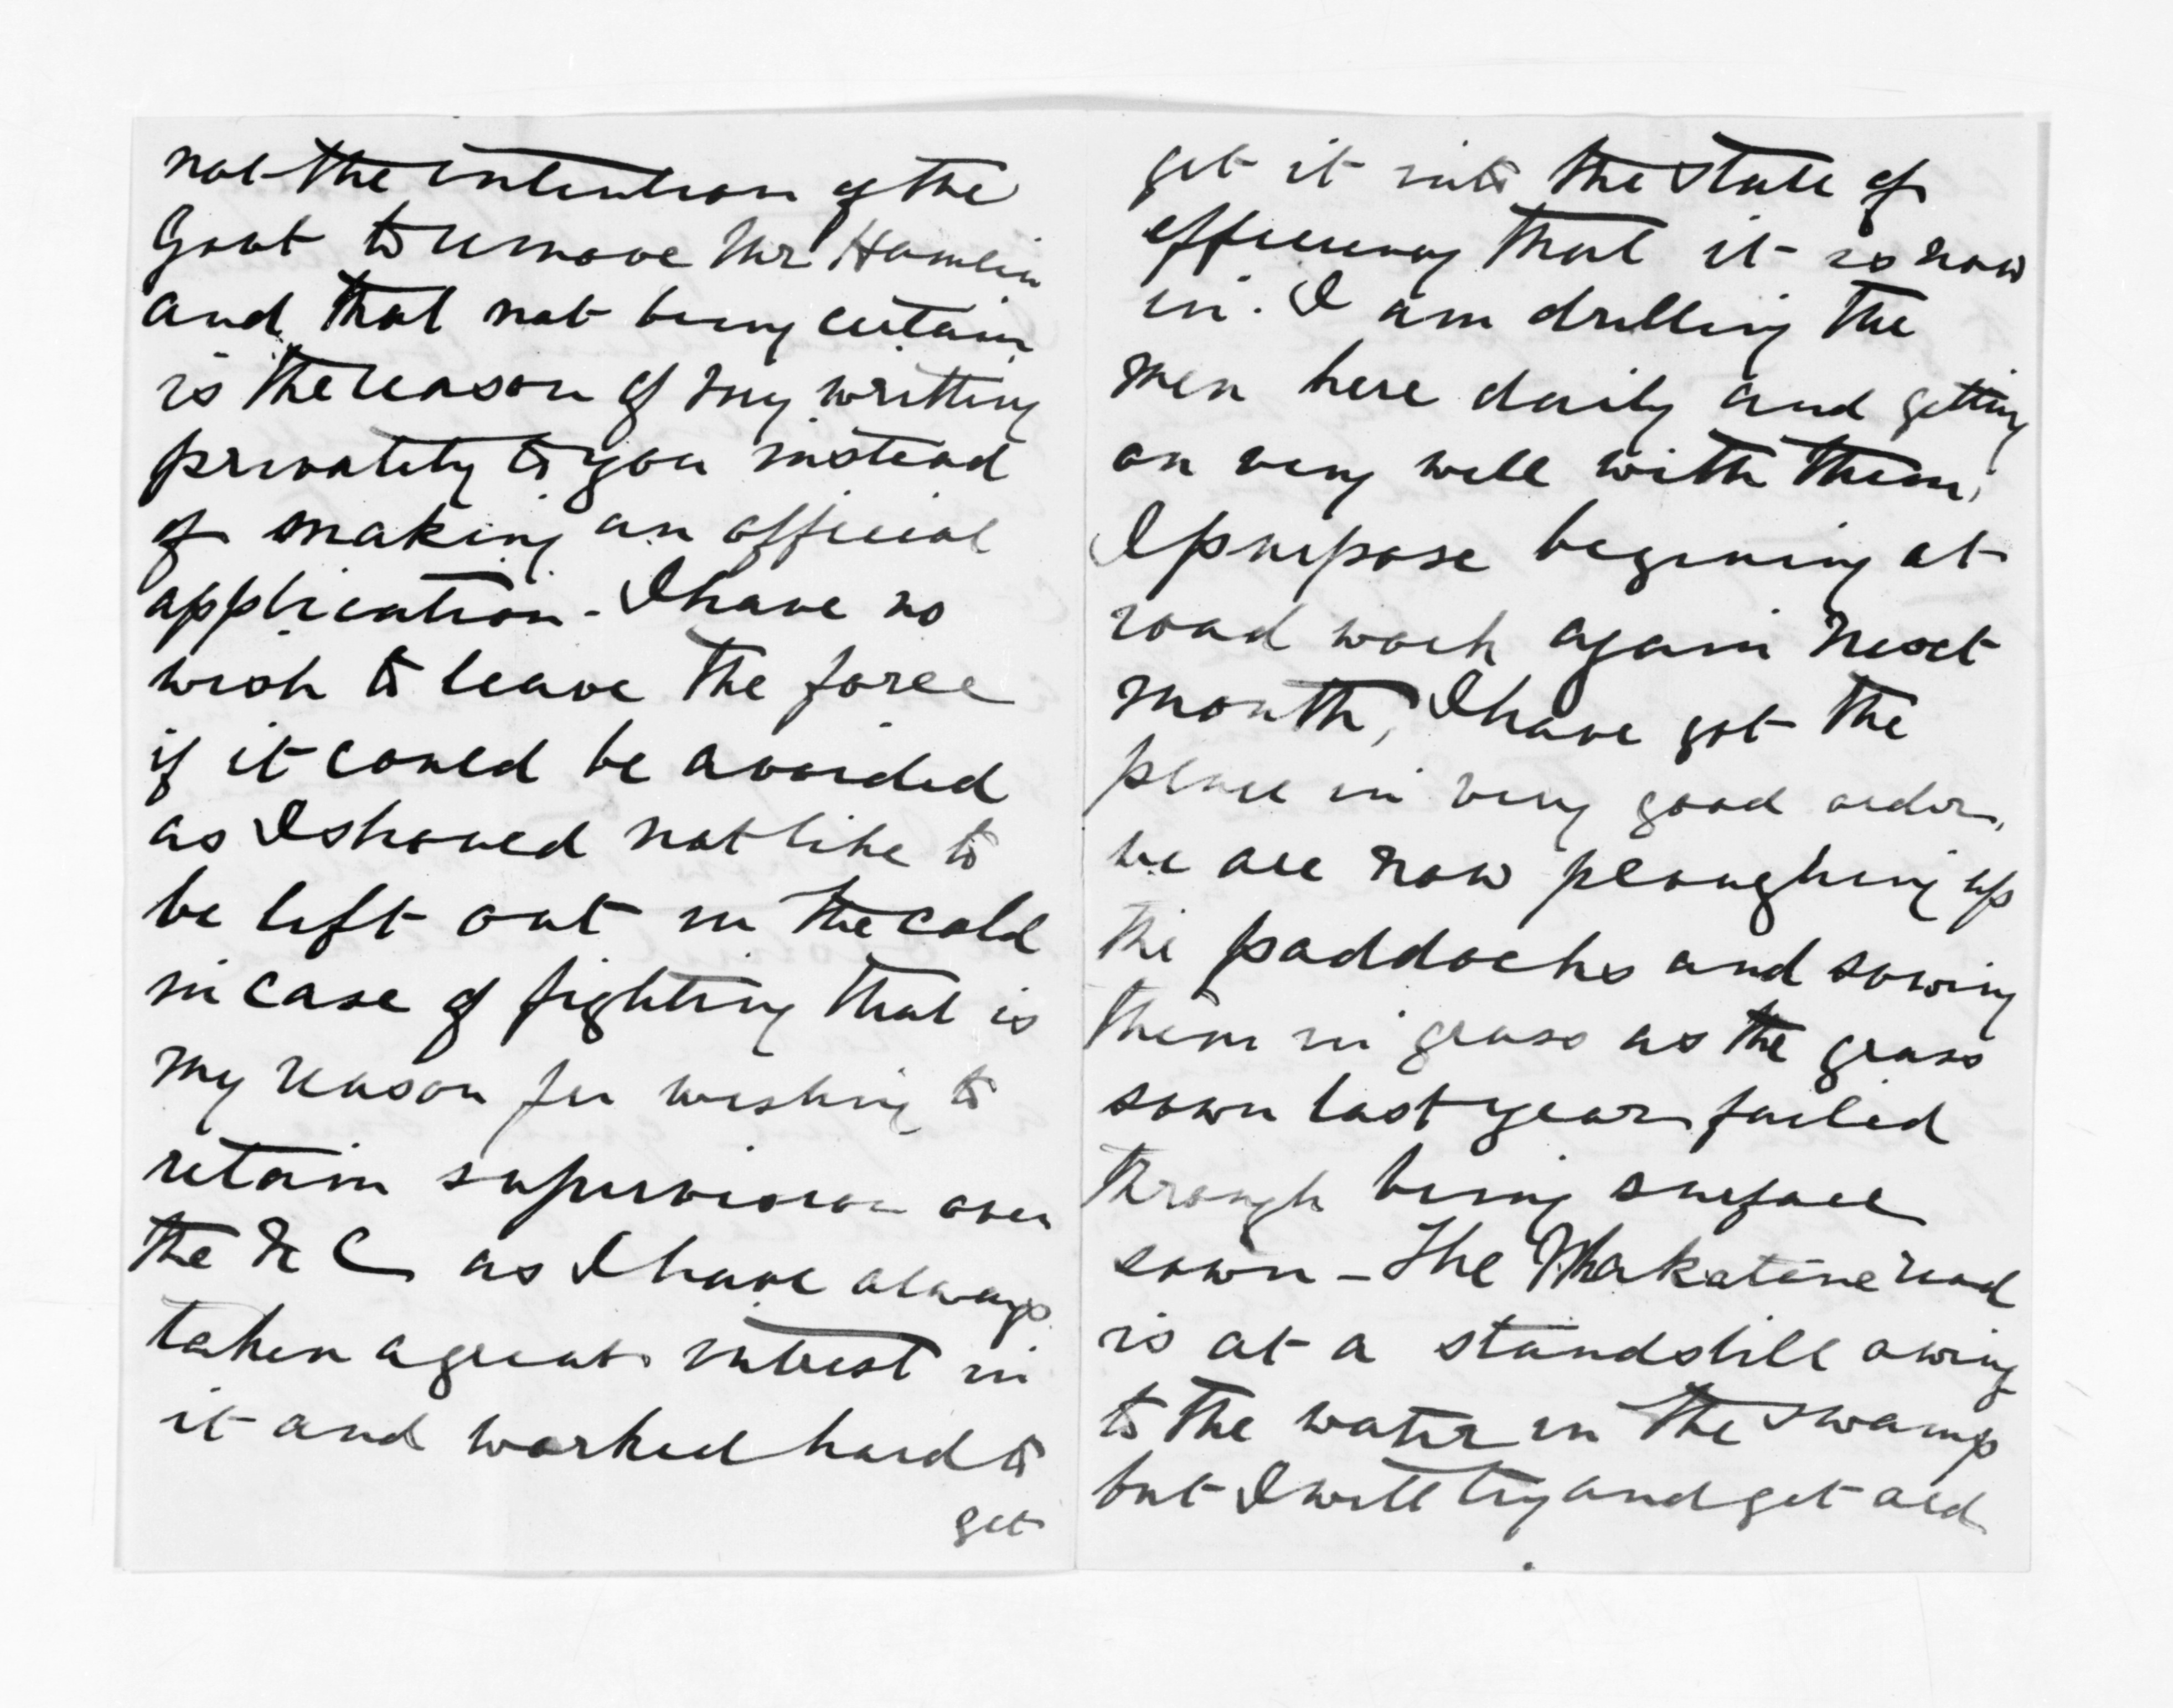 not the intention of the
Govt to remove Mr Hamlin
and that not being certain
is the reason of my writting
privately to you instead
of making an official
application - I have no
wish to leave the force
if it could be avoided
as I should not like to
be left out in the cold
in case of fighting that is
my reason for wishing to
retain supervision over
the N C as I have always
taken a great intrest in
it and worked hard to
get
get it into the state of
efficiency that it is now
in. I am drilling the
men here daily and getting
on very well with them,
I purpose begining at
road work again next
month, I have got the
place in very good order,
we are now ploughing up
the paddocks and sowing
them in grass as the grass
sown last year failed
through being surface
sown - The Whakatane road
is at a standstill owing
to the water in the swamp
but I will try and get